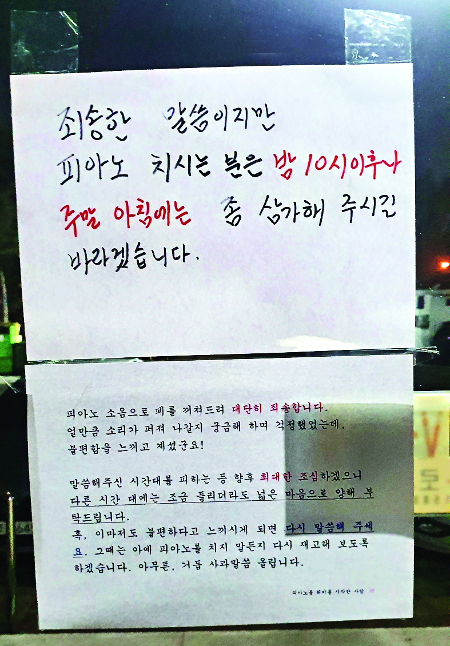 죄송한 말씀이지만
피아노 치시는 분은 밤 10시이후나
주말 아침에는 좀 삼가해 주시길
바라겠습니다.
피아노 소음으로 폐를 끼쳐드려 대단히 죄송합니다.
얼만큼 소리가 퍼져 나갈지 궁금해 하며 걱정했었는데,
불편함을 느끼고 계셨군요!
말씀해주신 시간대를 피하는 등 향후 최대한 조심하겠으니
다른 시간 대에는 조금 들리더라도 넓은 마음으로 양해 부
탁드립니다.
혹, 이마저도 불편하다고 느끼시게 되면 다시 말씀해 주세
요. 그때는 아예 피아노를 치지 말든지 다시 재고해 보도록
하겠습니다. 아무튼, 거듭 사과말씀 올립니다.
피아노를 취미를 시작한 사람
V
도